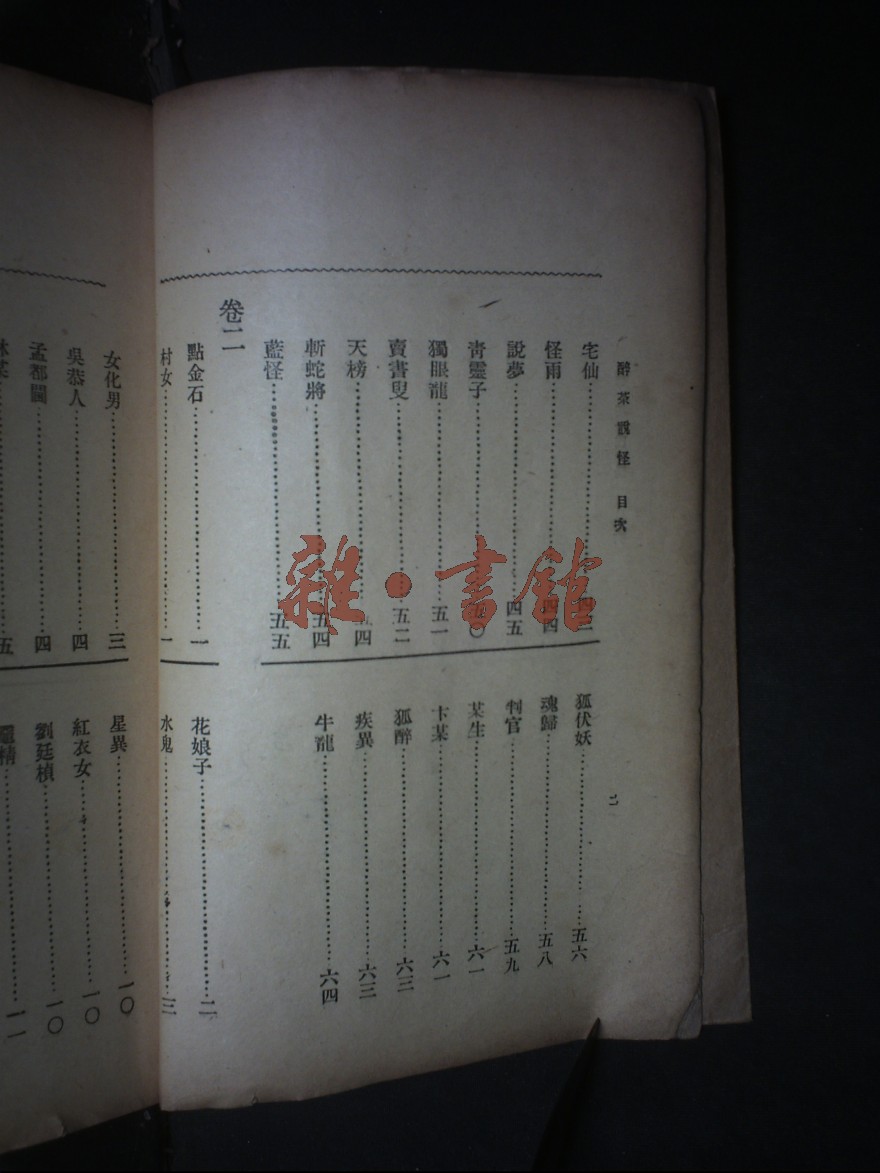 醉茶說怪 目次
宅仙
怪雨 四四
說夢 四五
青靈子 五〇
獨眼龍 五一
賣書叟 五二
天榜 五四
斬蛇將 五四
藍怪 五五
狐伏妖 五六
魂歸 五八
判官 五九
某生 六一
卞某 六一
狐醉 六三
疾異 六三
牛龍 六四
卷二
點金石 一
村女 一
花娘子 二
水鬼 三
女化男 三
吳恭人 四
孟都閫 四
五
星異 一〇
紅衣女 一〇
劉廷楨 一〇
精 一一
雜·書館